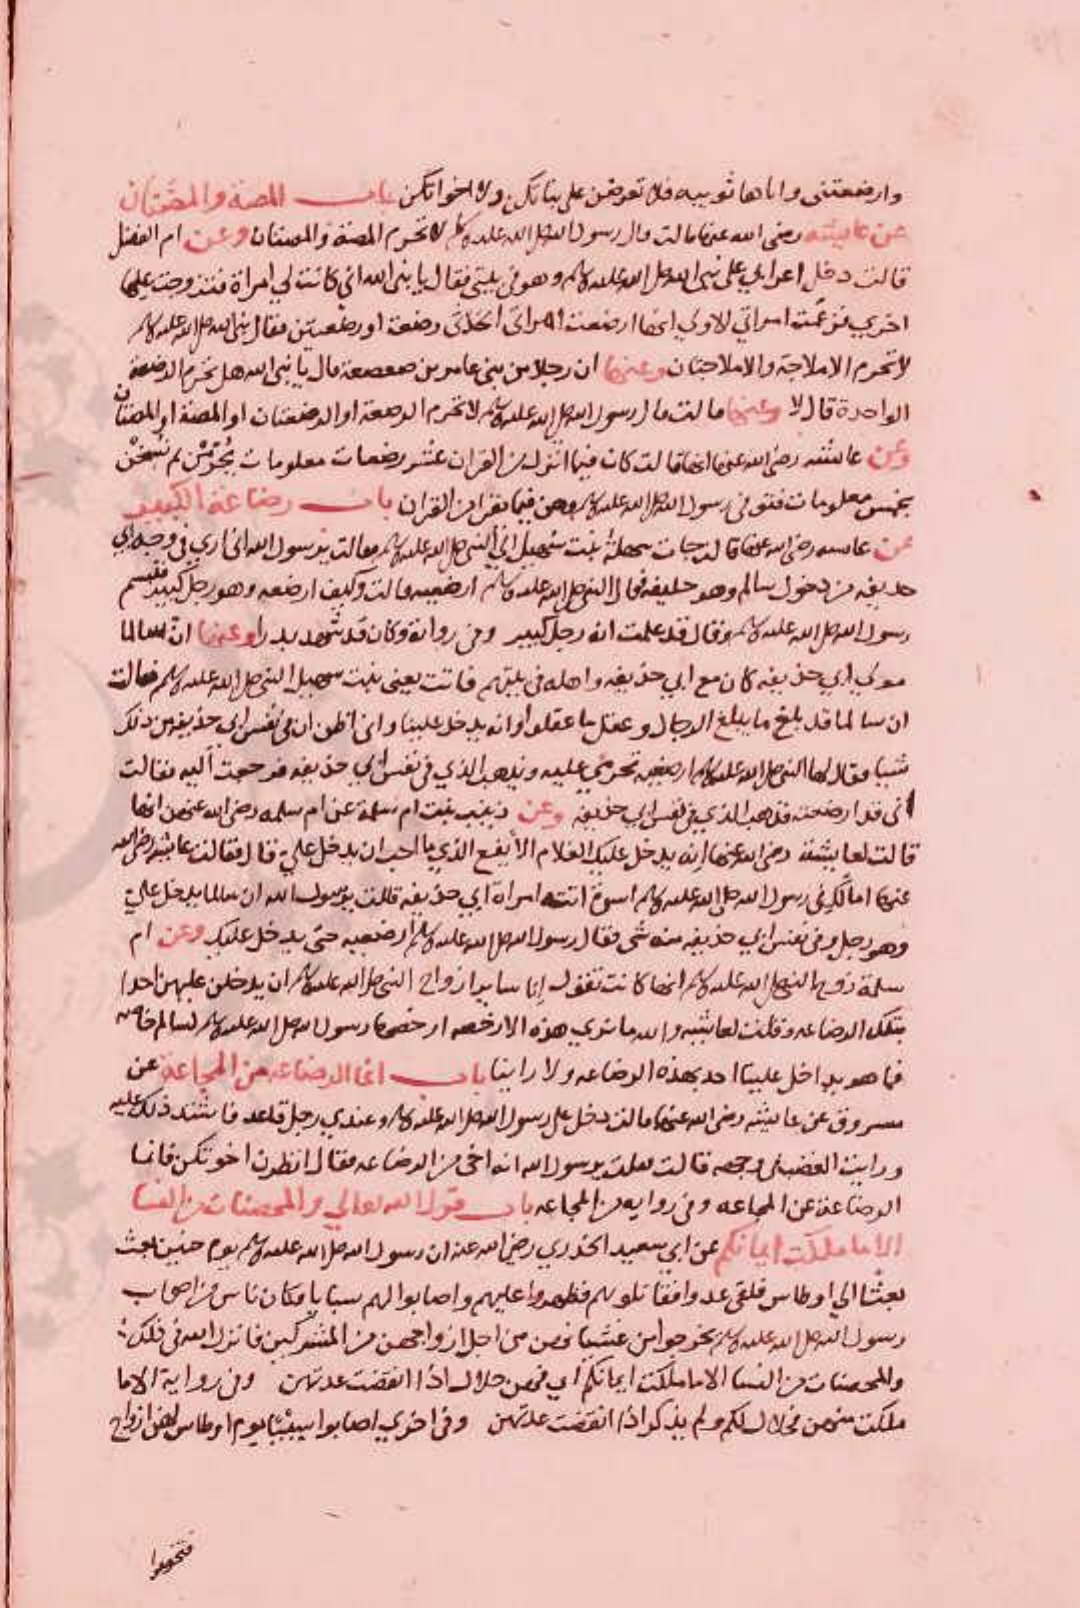 وارضعتني واباها ثويبه فلا تعرضن علي بناتكن ولا اخواتكن باب المصة والمصتان
عن عايشه رضي الله عنها قالت قال رسول الله صلى الله عليه وسلم لا تحرم المصة والمصتان وعن ام الفضل
قالت دخل اعرابي على نبي الله صلى الله عليه وسلم وهو في بيتي فقال يا نبي الله اني كانت لي امراة فتزوجت عليها
اخري فزعمت امراتي الاولي انها ارضعت امراتي الحدثى رضعة او رضعتين فقال نبي الله صلى الله عليه وسلم
لا تحرم الاملاجة والاملاجتان وعنها ان رجلا من بني عامر بن صعصعة قال يا نبي الله هل تحرم الرضعة
الواحدة قال لا وعنها قالت قال رسول الله صلى الله عليه وسلم لا تحرم الرضعة او الرضعتان او المصة او المصتان
وعن عائشه رضي الله عنها انها قالت كان فيما انزل من القران عشر رضعات معلومات يحرمن ثم نسخن
بخمس معلومات فتوفي رسول الله صلى الله عليه وسلم وهن فيما نقرا من القران باب رضاعة الكبير
عن عايشه رضي الله عنها قالت جات سهلة بنت سهيل الي النبي صلى الله عليه وسلم فقالت يرسول الله اني اري في وجه ابي
حذيفه من دخول سالم وهو حليفه فقال النبي صلى الله عليه وسلم ارضعيه قالت وكيف ارضعه وهو رجل كبير فتبسم
رسول الله صلى الله عليه وسلم وقال قد علمت انه رجل كبير وفي رواية وكان قد شهد بدرا وعنها ان سالما
مولي ابي حذيفه كان مع ابي حذيفه واهله في بيتهم فاتت يعني بنت سهيل النبي صلى الله عليه وسلم فقالت
ان سالما قد بلغ ما يبلغ الرجال وعقل ما عقلوا وانه يدخل علينا واني اظن ان في نفس ابي حذيفه من ذلك
شيا فقال لها النبي صلى الله عليه وسلم ارضعيه تحرمي عليه ويذهب الذي في نفس ابي حذيفه فرجعت اليه فقالت
اني قد ارضعته فذهب الذي في نفس ابي حذيفه وعن زينب بنت ام سلمة عن ام سلمه رضي الله عنهن انها
قالت لعايشة رضي الله عنها انه يدخل عليك الغلام الايفع الذي ما احب ان يدخل علي قال فقالت عايشه رضي الله
عنها امالك في رسول الله صلى الله عليه وسلم اسوة انت امراة ابي حذيفه قالت يرسول الله ان سالما يدخل علي
وهو رجل وفي نفس ابي حذيفه منه شى فقال رسول الله صلى الله عليه وسلم ارضعيه حتى يدخل عليك وعن ام
سلمة زوج النبي صلى الله عليه وسلم انها كانت تقول ابا ساير ازواج النبي صلى الله عليه وسلم ان يدخلن عليهن احدا
بتلك الرضاعه وقلن لعايشه والله ما نري هذه الا رخصه ارخصها رسول الله صلى الله عليه وسلم لسالم خاصه
فما هو بداخل علينا احد بهذه الرضاعه ولا راينا باب انما الرضاعه من المجاعة عن
مسروق عن عايشه رضي الله عنها قالت دخل علي رسول الله صلى الله عليه وسلم وعندي رجل قاعد فاشتد ذلك عليه
ورايت الغضب في وجهه قالت فقلت يرسول الله انه اخي من الرضاعه فقال انظرن اخوتكن فانما
الرضاعة عن المجاعه وفي روايه من المجاعه باب قول الله تعالي والمحصنات من النسا
الا ما ملكت ايمانكم عن ابي سعيد الخدري رضي الله عنه ان رسول الله صلى الله عليه وسلم يوم حنين بعث
بعثنا الي اوطاس فلقي عدوا فقاتلوهم فظهروا عليهم واصابوا لهم سبايا فكان ناس من اصحاب
رسول الله صلى الله عليه وسلم تحرجوا من غشيانهن من اجل ازواجهن من المشركين فانزل الله في ذلك
والمحصنات من النسا الا ما ملكت ايمانكم اي فهن حلال اذا انقضت عدتهن وفي رواية الا ما
ملكت منهن فحلال لكم ولم يذكر اذا انقضت عدتهن وفي اخري اصابوا سبيا يوم اوطاس لهن ازواج
فتخوفوا